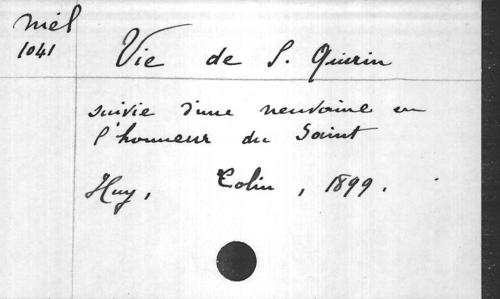 Niel
1041
Vie de S. Quirin
suivie d'une neuvaine en
l'honneur du Saint
Huy, Colin, 1899.